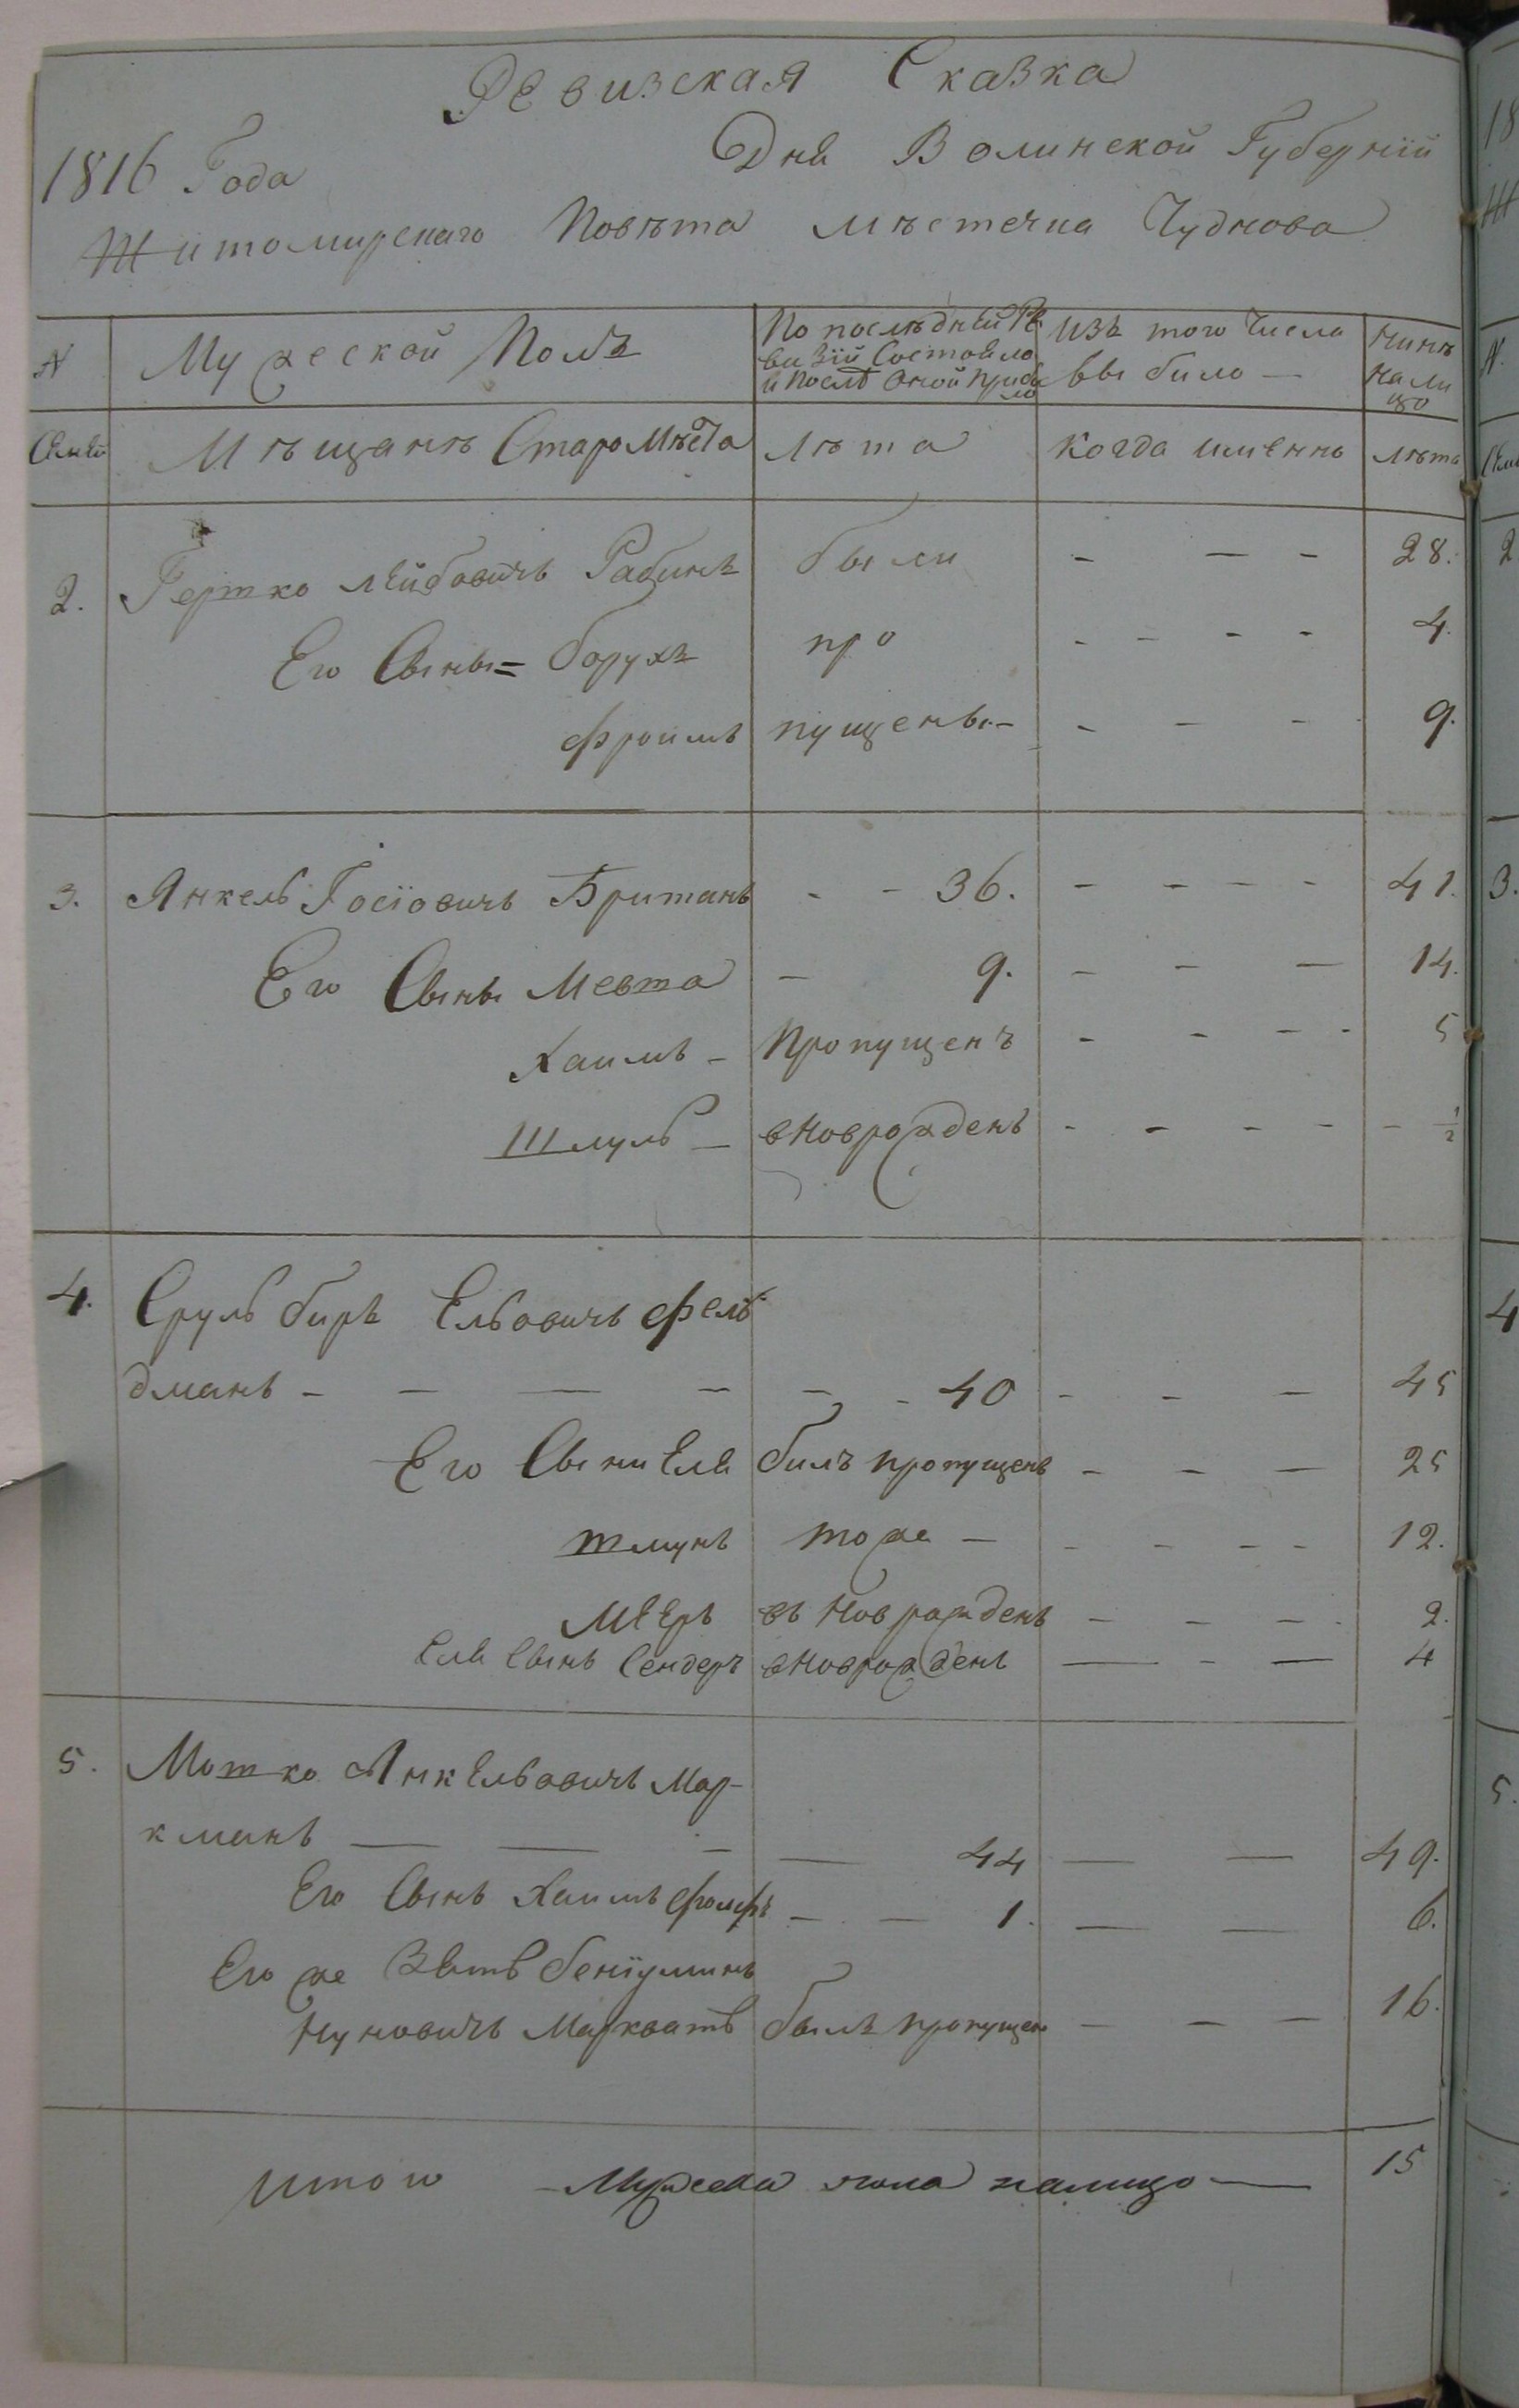 Ревизская Сказка
1816 Года Дня Волинской Губернїй
Житомирскаго Повѣта мѣстечка Чуднова
N Мужеской Полъ По послѣдней Ре изъ того Числа Нинѣ
визїй Состояло вы било — нали
и послѣ Оной прибы цо
ло
Семей Мѣщанъ СтароМѣста лѣта когда именно лѣта
2. Гершко лейбовичъ Рабинъ были - — - 28.
Его Сыны= борухъ про - - - - 4.
фроимъ пущены.- - - - 9.
3. Янкель Госїовичъ Бриманъ - - 36. - - - - 41.
Его Сыны Мевша - 9. - - — 14.
Хаимъ - Пропущенъ - - - - 5
Шмуль - вновражденъ - - - - - 1/2
4. Сруль биръ Ельовичъ фель
дманъ - — — - - - 40 - - — 45
Его Сыни Еля билъ пропущенъ - - — 25
шмунъ тоже — - - - - 12.
Меерь въ Нов рожденъ - - - - 2.
Еля Сынъ Сендеръ вноврожденъ — - — 4
5. Мошко Янкельовичъ Мар-
кманъ — — - — 44 — — 49.
Его Сынъ Хаимъ фолфъ - — 1. — — 6.
Его же Зять бенїуминъ
Нуновичъ Маркватъ былъ пропущен — — — 16.
Итого - Мужеска пола налицо — 15
18
N.
2
3.
4
5.